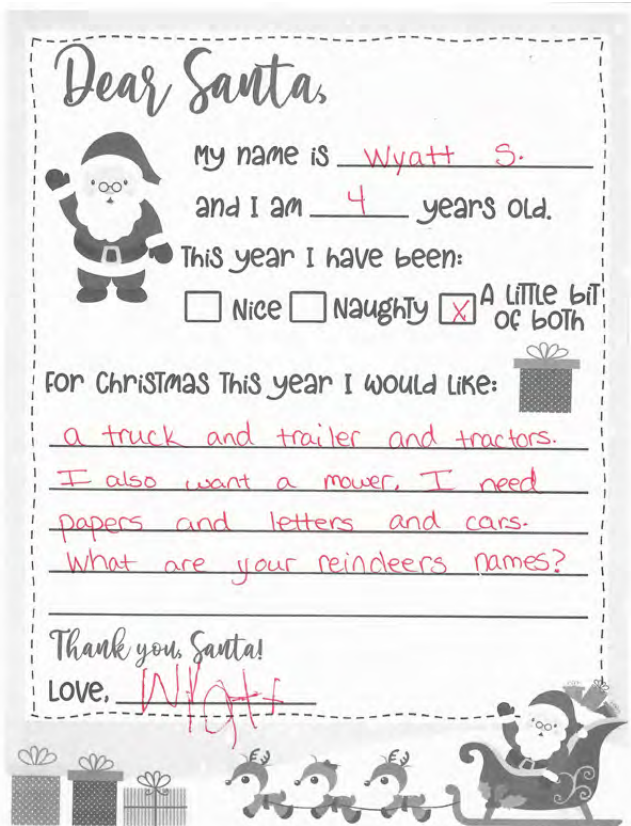 Dear Santa,
My name is Wyatt S.
and I am 4 years old.
This year I have been:
Nice Naughty X A little bit of both
For Christmas this year I would like:
a truck and trailer and tractors.
I also want a mower. I need
papers and letters and cars.
What are your reindeers names?
Thank you, Santa!
Love, Wyatt